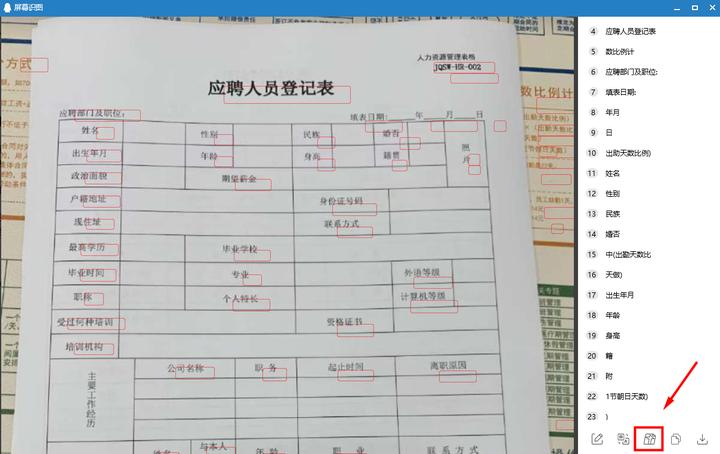 屏幕识图
人力资源管理表格
JQSW-HR-002
应聘人员登记表
应聘部门及职位:
填表日期: 年 月 日
姓名 性别 民族 婚否 照片
出生年月 年龄 身高 籍贯
政治面貌 期望薪金
户籍地址 身份证号码
现住址 联系方式
最高学历 毕业学校
毕业时间 专业 外语等级
职称 个人特长 计算机等级
受过何种培训 资格证书
培训机构
主要工作经历 公司名称 职务 起止时间 离职原因
姓名 与本人 年龄 职业 联系方式
数比例计
4 应聘人员登记表
5 数比例计
6 应聘部门及职位:
7 填表日期:
8 年月
9 日
10 出勤天数比例)
11 姓名
12 性别
13 民族
14 婚否
15 中(出勤天数比
16 天做)
17 出生年月
18 年龄
19 身高
20 籍
21 附
22 1节朝日天数)
23 )